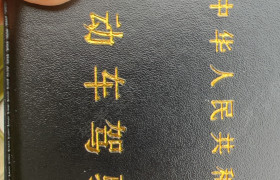 中华人民共和
动车驾